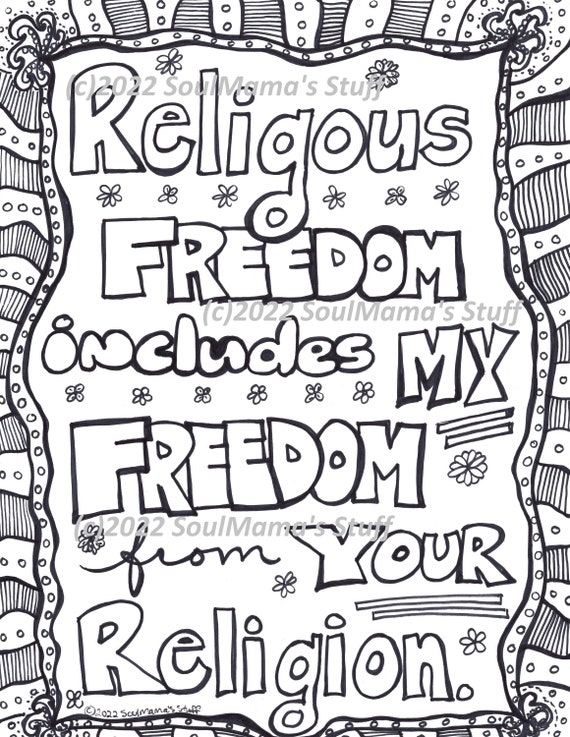 (c)2022 SoulMama's Stuff
Religous
FREEDOM
(c)2022 SoulMama's Stuff
includes MY
FREEDOM
(c)2022 SoulMama's Stuff
from YOUR
Religion.
©2022 SoulMama's Stuff